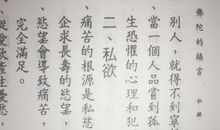 佛陀的格言　私欲
別人，就得不到寧
當一個人品嘗到孤
生恐懼的心理和犯
二、私欲
痛苦的根源是私慾
企求長壽的慾望，
、慾望會導致痛苦，
完全滿足。